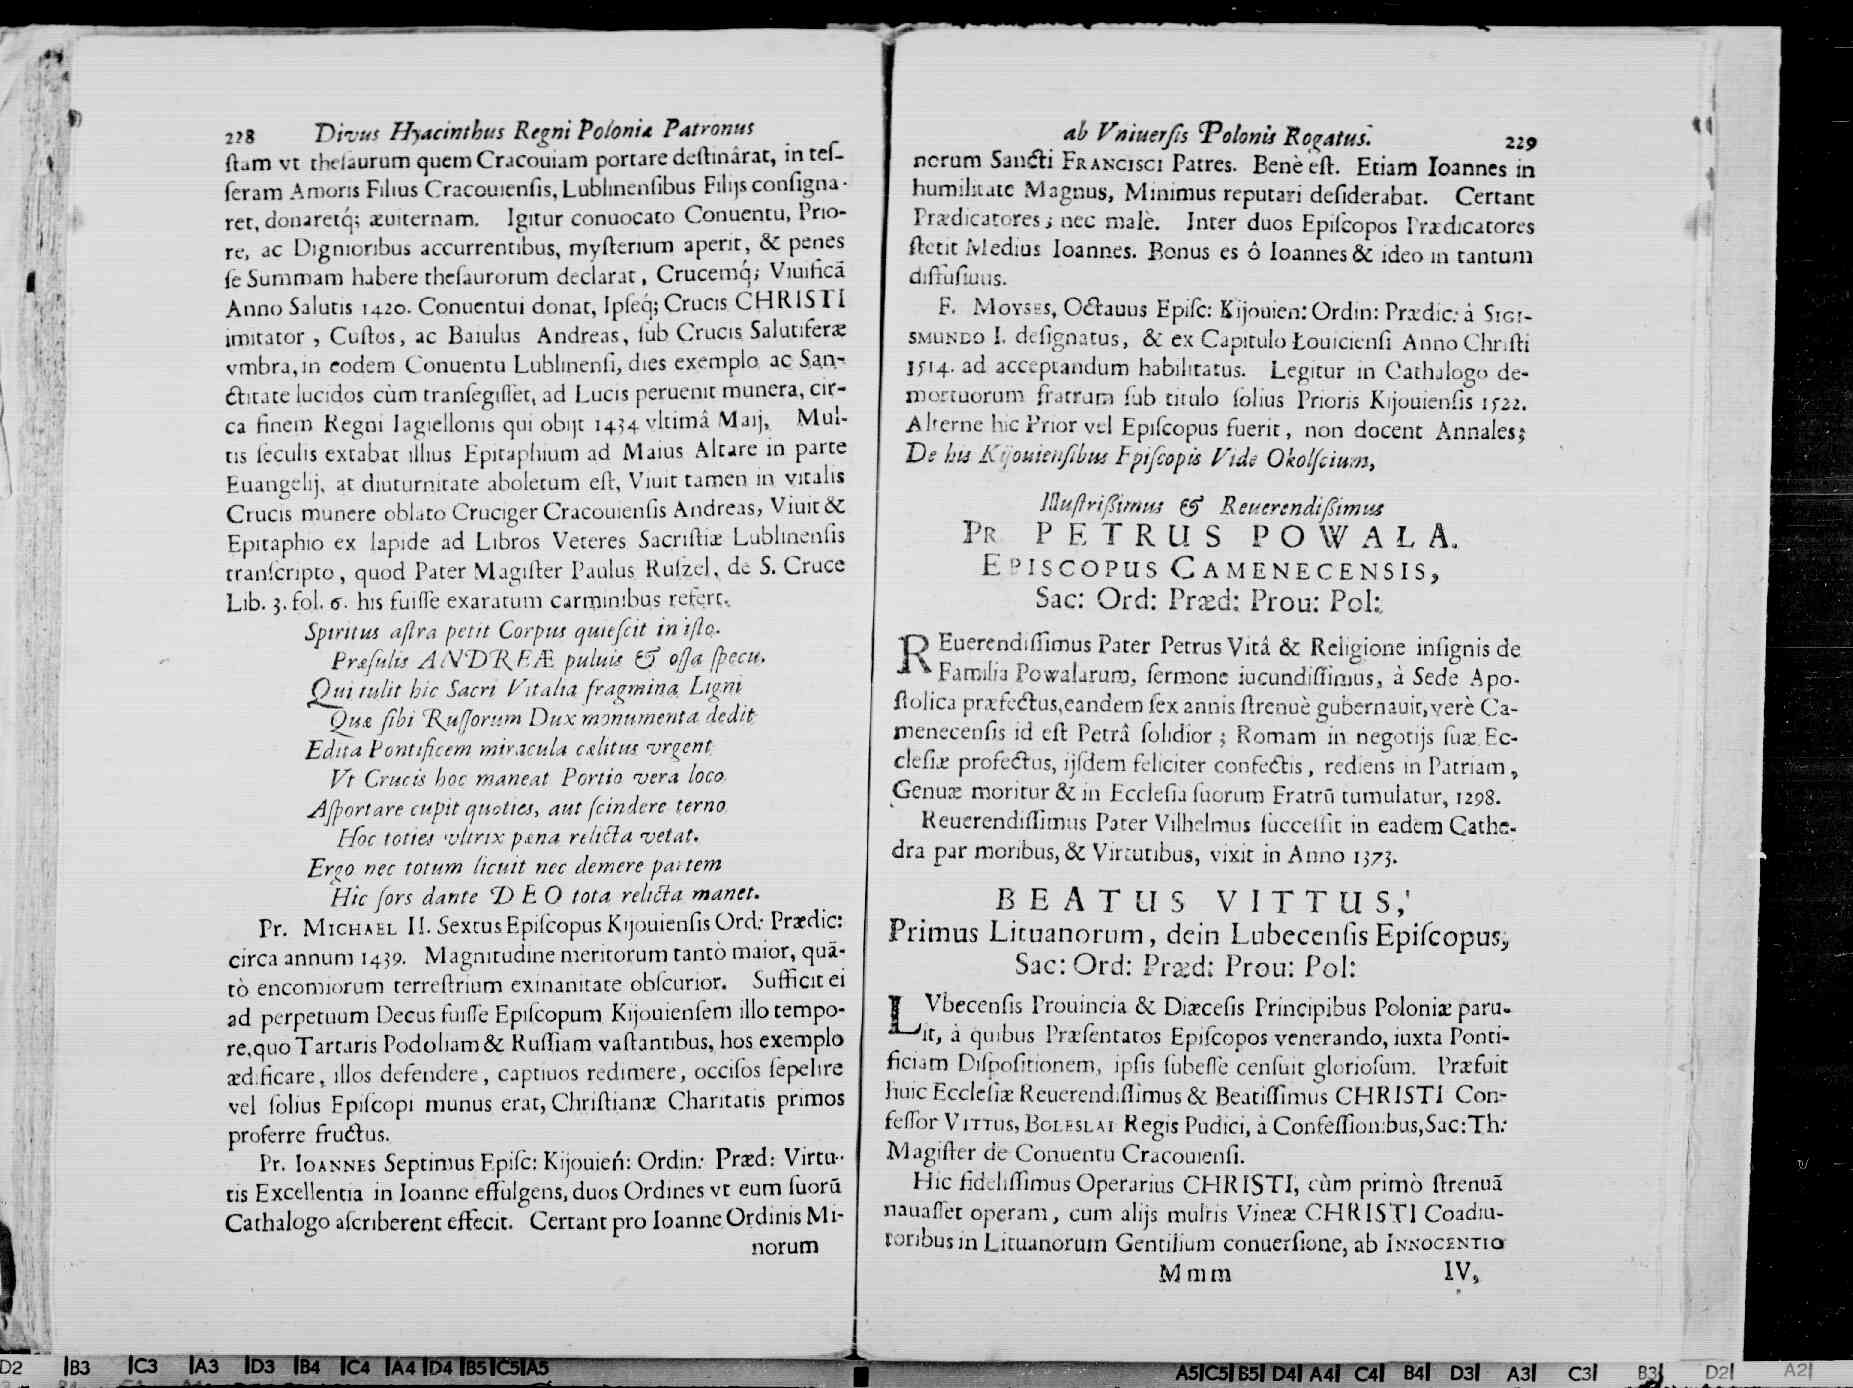 228 Divus Hyacinthus Regni Poloniæ Patronus
ſtam vt theſaurum quem Cracouiam portare deſtinârat, in teſ-
ſeram Amoris Filius Cracouienſis, Lublinenſibus Filijs conſigna-
ret, donaretq́; æuiternam. Igitur conuocato Conuentu, Prio-
re, ac Dignioribus accurrentibus, myſterium aperit, & penes
ſe Summam habere theſaurorum declarat, Crucemq́; Viuificā
Anno Salutis 1420. Conuentui donat, Ipſeq́; Crucis CHRISTI
imitator, Cuſtos, ac Baiulus Andreas, ſub Crucis Salutiferæ
vmbra, in eodem Conuentu Lublinenſi, dies exemplo ac San-
ctitate lucidos cùm tranſegiſſet, ad Lucis peruenit munera, cir-
ca finem Regni Iagiellonis qui obijt 1434 vltimâ Maij, Mul-
tis ſeculis extabat illius Epitaphium ad Maius Altare in parte
Euangelij, at diuturnitate aboletum eſt, Viuit tamen in vitalis
Crucis munere oblato Cruciger Cracouienſis Andreas, Viuit &
Epitaphio ex lapide ad Libros Veteres Sacriſtiæ Lublinenſis
tranſcripto, quod Pater Magiſter Paulus Ruſzel, de S. Cruce
Lib. 3. fol. 6. his fuiſſe exaratum carminibus refert.
Spiritus aſtra petit Corpus quieſcit in iſto.
Præſulis ANDREÆ puluis & oſſa ſpecu.
Qui tulit hic Sacri Vitalia fragmina Ligni
Quæ ſibi Ruſſorum Dux monumenta dedit
Edita Pontificem miracula cælitus vrgent
Vt Crucis hoc maneat Portio vera loco
Aſportare cupit quoties, aut ſcindere terno
Hoc toties vltrix pæna relicta vetat.
Ergo nec totum licuit nec demere partem
Hic ſors dante DEO tota relicta manet.
Pr. MICHAEL II. Sextus Epiſcopus Kijouienſis Ord: Prædic:
circa annum 1439. Magnitudine meritorum tantò maior, quā-
tò encomiorum terreſtrium exinanitate obſcurior. Sufficit ei
ad perpetuum Decus fuiſſe Epiſcopum Kijouienſem illo tempo-
re, quo Tartaris Podoliam & Ruſſiam vaſtantibus, hos exemplo
ædificare, illos defendere, captiuos redimere, occiſos ſepelire
vel ſolius Epiſcopi munus erat, Chriſtianæ Charitatis primos
proferre fructus.
Pr. IOANNES Septimus Epiſc: Kijouień: Ordin: Præd: Virtu-
tis Excellentia in Ioanne effulgens, duos Ordines vt eum ſuorū
Cathalogo aſcriberent effecit. Certant pro Ioanne Ordinis Mi-
norum
ab Vniuerſis Polonis Rogatus. 229
norum Sancti FRANCISCI Patres. Benè eſt. Etiam Ioannes in
humilitate Magnus, Minimus reputari deſiderabat. Certant
Prædicatores; nec malè. Inter duos Epiſcopos Prædicatores
ſtetit Medius Ioannes. Bonus es ô Ioannes & ideo in tantum
diffuſiuus.
F. MOYSES, Octauus Epiſc: Kijouien: Ordin: Prædic: à SIGI-
SMUNDO I. deſignatus, & ex Capitulo Łouicienſi Anno Chriſti
1514. ad acceptandum habilitatus. Legitur in Cathalogo de-
mortuorum fratrum ſub titulo ſolius Prioris Kijouienſis 1522.
Alterne hic Prior vel Epiſcopus fuerit, non docent Annales;
De his Kijouienſibus Epiſcopis Vide Okolſcium,
Illuſtriſſimus & Reuerendiſſimus
PR PETRUS POWALA.
EPISCOPUS CAMENECENSIS,
Sac: Ord: Præd: Prou: Pol:
REuerendiſſimus Pater Petrus Vitâ & Religione inſignis de
Familia Powalarum, ſermone iucundiſſimus, à Sede Apo-
ſtolica præfectus, eandem ſex annis ſtrenuè gubernauit, verè Ca-
menecenſis id eſt Petrâ ſolidior; Romam in negotijs ſuæ Ec-
cleſiæ profectus, ijſdem feliciter confectis, rediens in Patriam,
Genuæ moritur & in Eccleſia ſuorum Fratrū tumulatur, 1298.
Reuerendiſſimus Pater Vilhelmus ſucceſſit in eadem Cathe-
dra par moribus, & Virtutibus, vixit in Anno 1373.
BEATUS VITTUS,
Primus Lituanorum, dein Lubecenſis Epiſcopus,
Sac: Ord: Præd: Prou: Pol:
LVbecenſis Prouincia & Diæceſis Principibus Poloniæ paru-
it, à quibus Præſentatos Epiſcopos venerando, iuxta Ponti-
ficiam Diſpoſitionem, ipſis ſubeſſe cenſuit glorioſum. Præfuit
huic Eccleſiæ Reuerendiſſimus & Beatiſſimus CHRISTI Con-
feſſor VITTUS, BOLESLAI Regis Pudici, à Confeſſionibus, Sac: Th:
Magiſter de Conuentu Cracouienſi.
Hic fideliſſimus Operarius CHRISTI, cùm primò ſtrenuā
nauaſſet operam, cum alijs multis Vineæ CHRISTI Coadiu-
toribus in Lituanorum Gentilium conuerſione, ab INNOCENTIO
Mmm IV,
D2 B3 C3 A3 D3 B4 C4 A4 D4 B5 C5 A5 A5 C5 B5 D4 A4 C4 B4 D3 A3 C3 B3 D2 A2